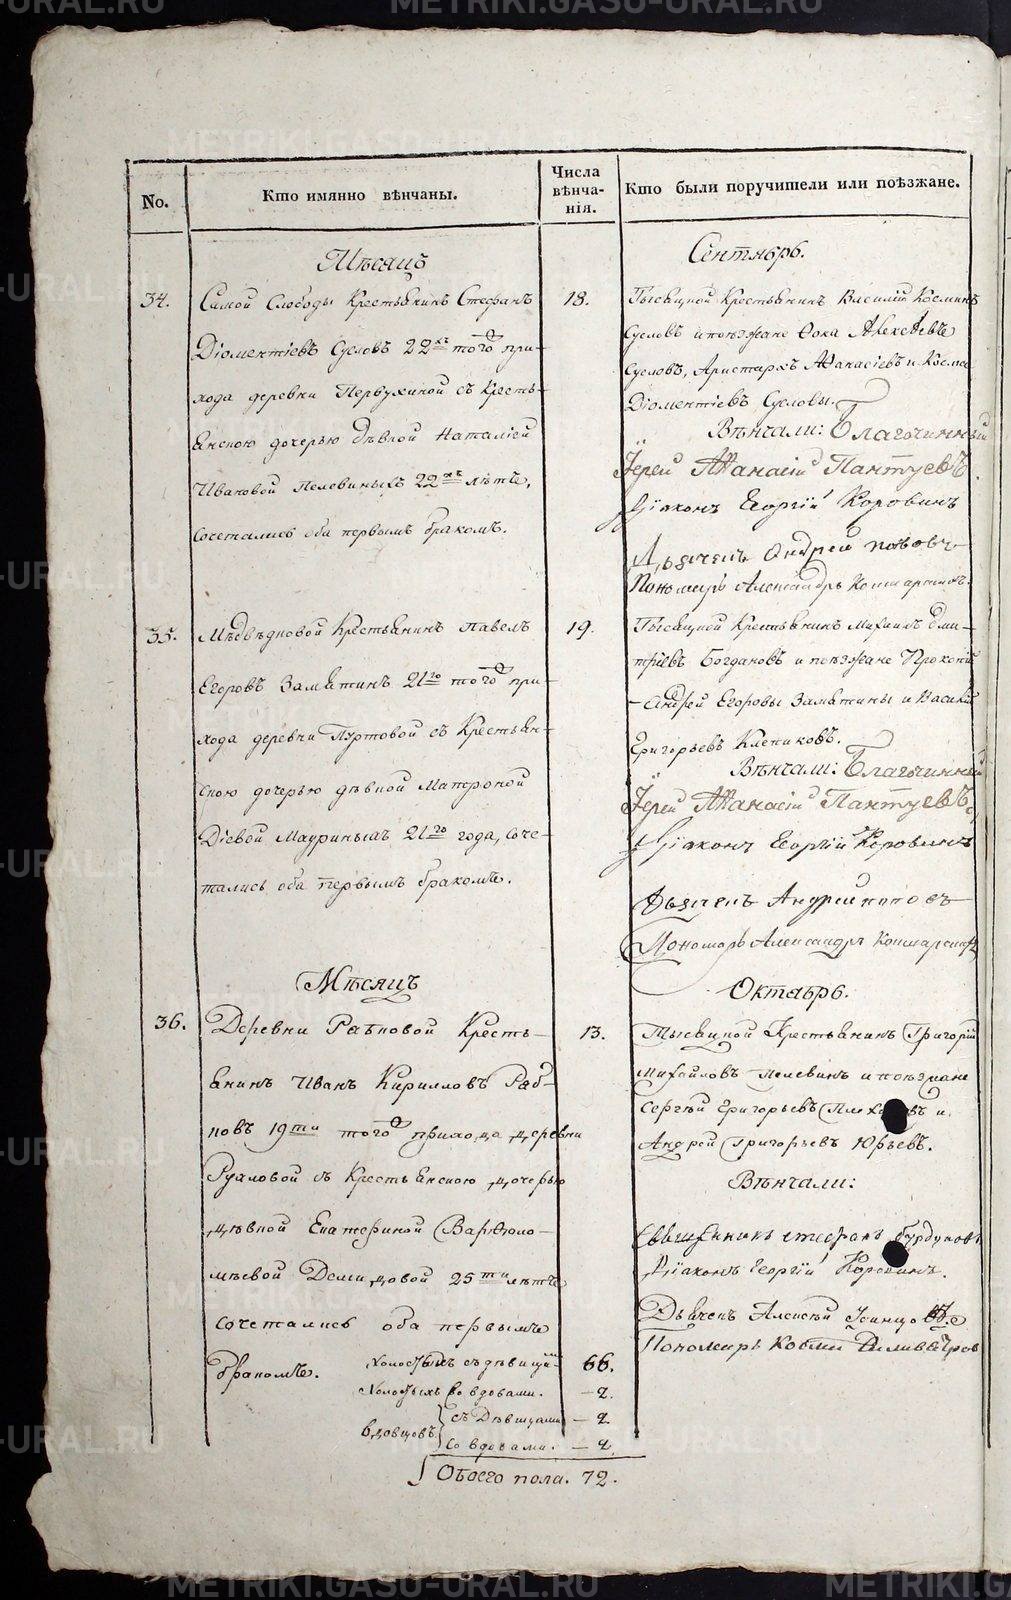 METRIKI.GASU-URAL.RU
No.
Кто имянно вѣнчаны.
Числа вѣнча-нія.
Кто были поручители или поѣзжане.
Мѣсяцъ
Сентябрь.
34.
Самой Слободы Крестьянинъ Стефанъ
Діоментіевъ Сусловъ 22хъ того при-
хода деревни Первухиной съ Кресть-
янскою дочерью дѣвкой Наталіей
Ивановой Пелевиныхъ 22хъ лѣтъ,
сочетались оба первымъ бракомъ.
18.
Тысяцкой Крестьянинъ Василій Косминъ
Сусловъ и поѣзжане Фока Алексѣевъ
Сусловъ, Аристархъ Афанасіевъ и Косма
Діоментіевъ Сусловы.
Вѣнчали: Благочинный
Іерей Афанасій Пантуевъ
Діаконъ Георгій Коровинъ
Дьячекъ Андрей Поповъ
Пономарь Александръ
35.
Крестьянинъ Павелъ
Егоровъ Замятинъ 21го того при-
хода деревни Пуртовой съ Крестьян-
скою дочерью дѣвкой Матроной
Діевой Мауриныхъ 21го года, соче-
тались оба первымъ бракомъ.
19.
Тысяцкой Крестьянинъ Михаилъ Дми-
тріевъ Богдановъ и поѣзжане Прокопій
Андрей Егоровы Замятины и Василій
Григорьевъ Клепиковъ.
Вѣнчали: Благочинный
Іерей Афанасій Пантуевъ
Діаконъ Георгій Коровинъ
Дьячекъ Андрей Поповъ
Пономарь Александръ
Мѣсяцъ
Октябрь.
36.
Деревни Рябковой Кресть-
янинъ Иванъ Кирилловъ Ряб-
ковъ 19ти того прихода деревни
съ Крестьянскою дочерью
дѣвкой Екатериной Варфоло-
мѣевой Демидовой 25ти лѣтъ
сочетались оба первымъ
бракомъ.
13.
Тысяцкой Крестьянинъ Григорій
Михайловъ Пелевинъ и поѣзжане
Сергѣй Григорьевъ и
Андрей Григорьевъ Юрьевъ.
Вѣнчали:
Священникъ Стефанъ
Діаконъ Георгій Коровинъ.
Дьячекъ Алексѣй
Пономарь Косма
Холостыхъ съ дѣвицами 66.
Холостыхъ со вдовами. — 2.
вдовцовъ { съ Дѣвицами — 2.
со вдовами. — 2.
Обоего пола. 72.